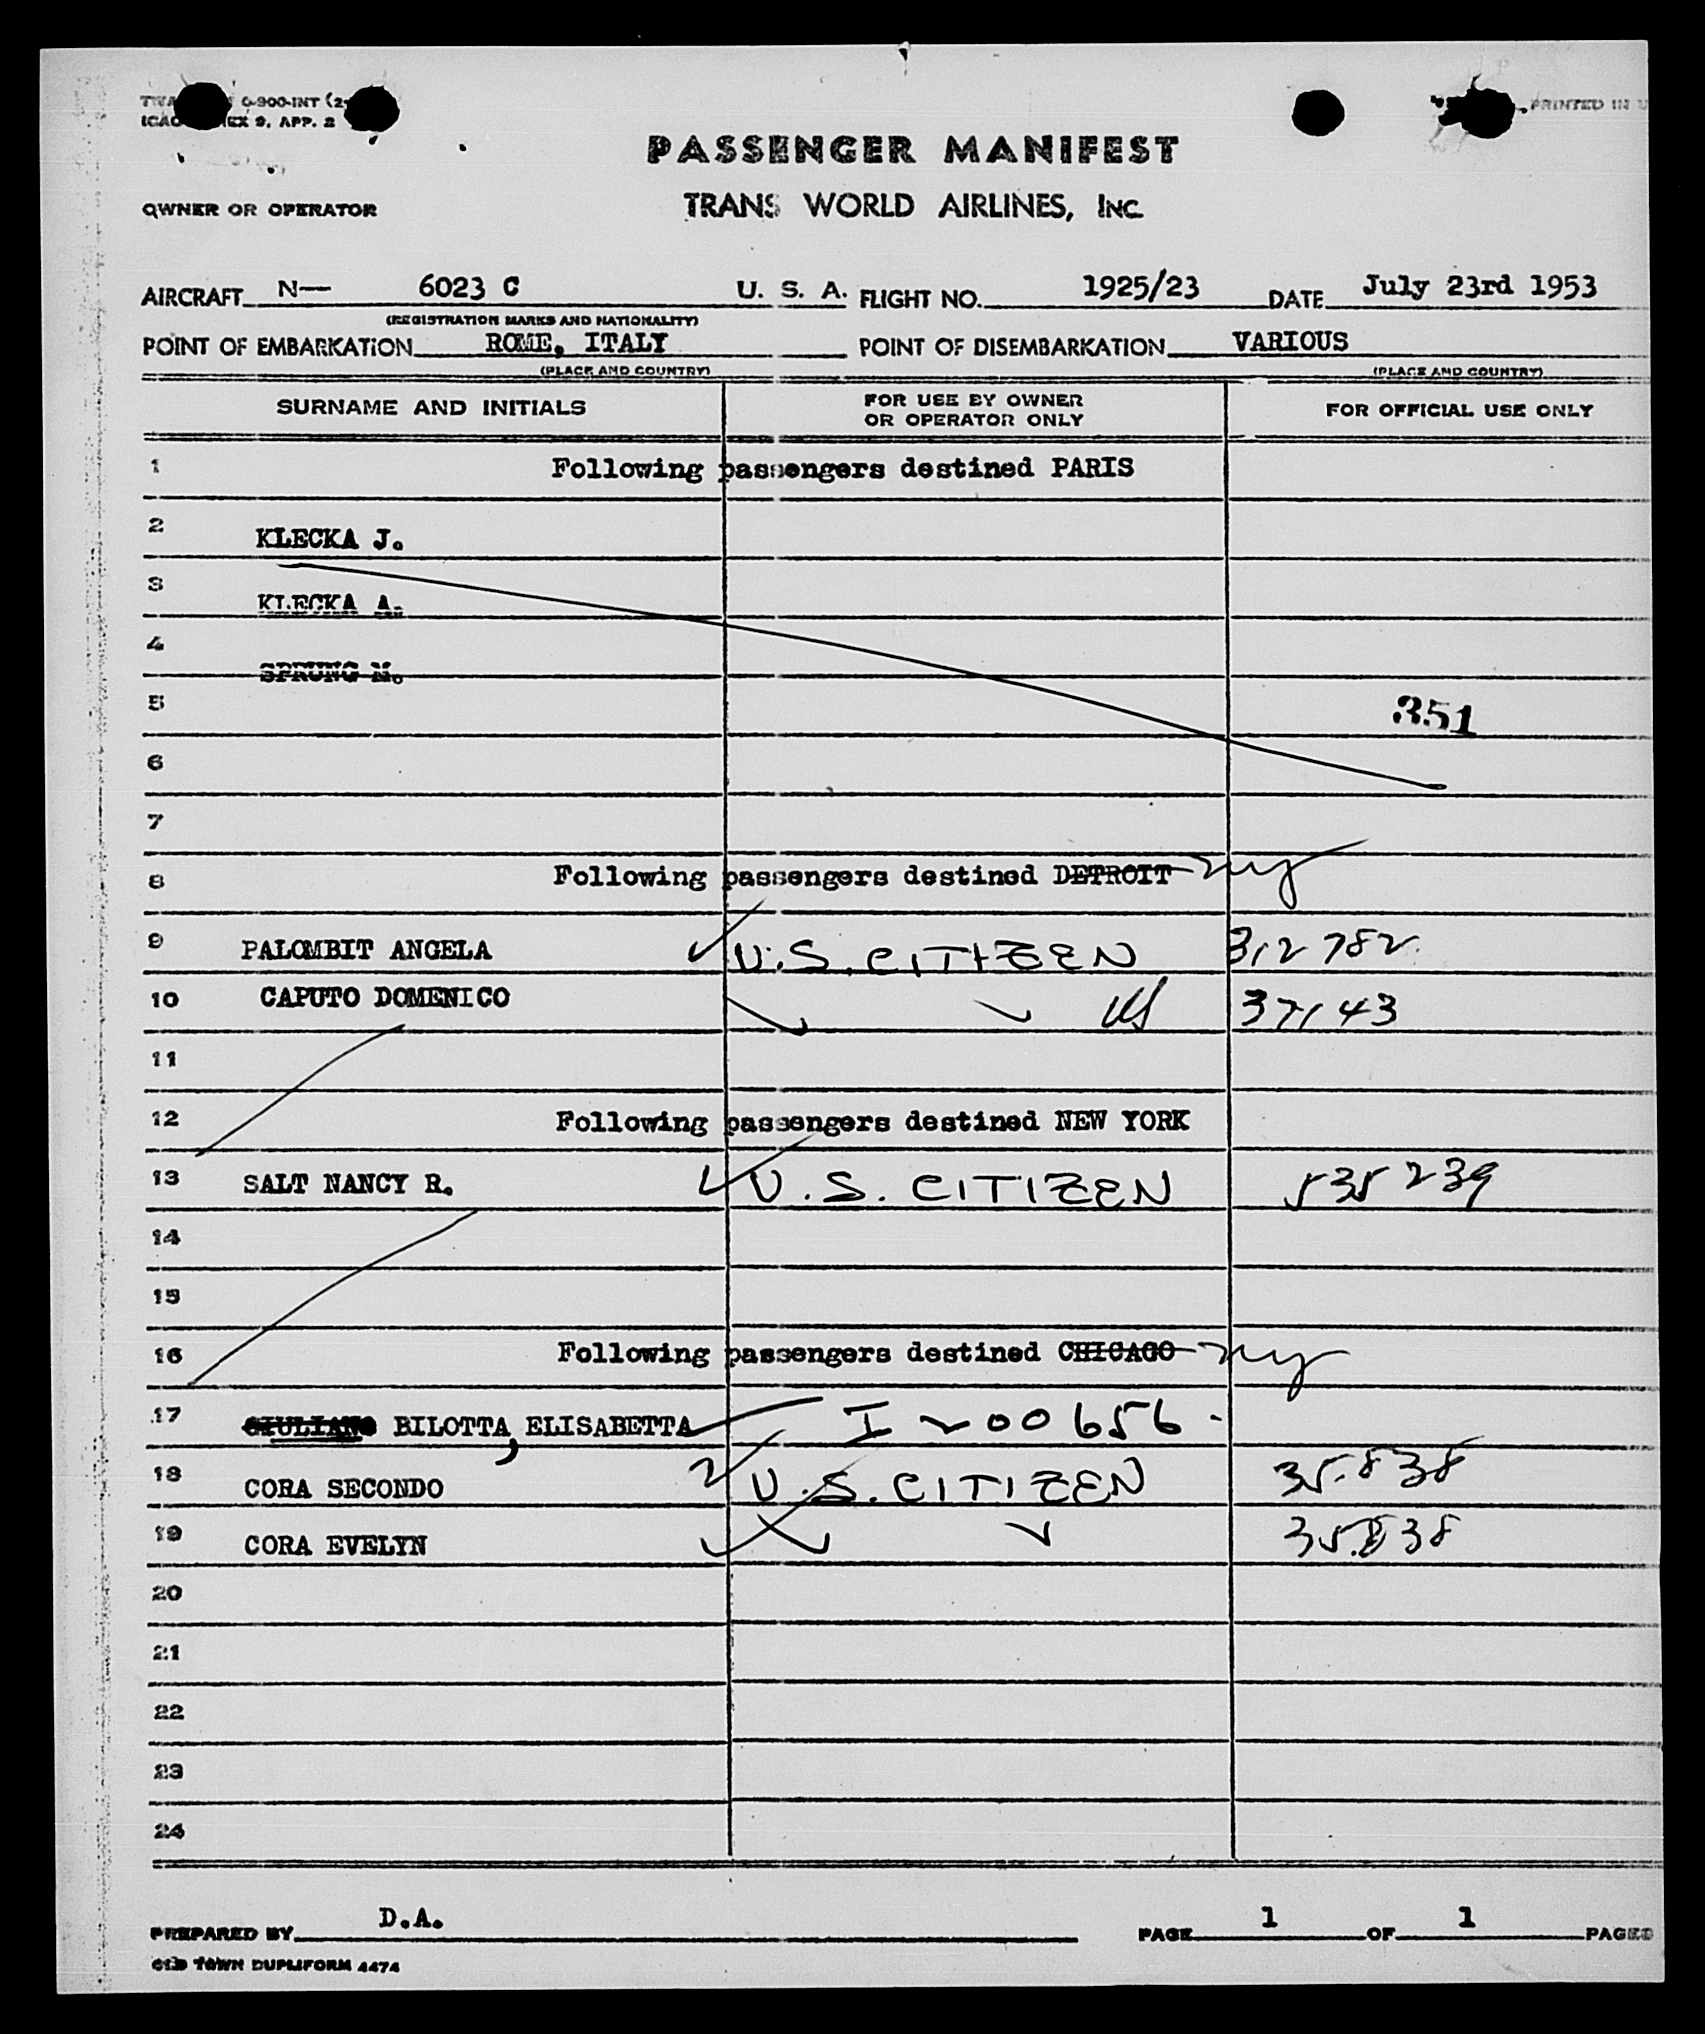 0-900-INT (2-
ICAO ANNEX 9, APP. 2
PRINTED IN U
PASSENGER MANIFEST
TRANS WORLD AIRLINES, INC.
OWNER OR OPERATOR
AIRCRAFT N— 6023 C U. S. A. FLIGHT NO. 1925/23 DATE July 23rd 1953
(REGISTRATION MARKS AND NATIONALITY)
POINT OF EMBARKATION ROME, ITALY POINT OF DISEMBARKATION VARIOUS
(PLACE AND COUNTRY) (PLACE AND COUNTRY)
SURNAME AND INITIALS FOR USE BY OWNER OR OPERATOR ONLY FOR OFFICIAL USE ONLY
1 Following passengers destined PARIS
2 KLECKA J.
3 KLECKA A.
4 SPRUNG M.
5 351
6
7
8 Following passengers destined DETROIT ny
9 PALOMBIT ANGELA U.S. CITIZEN 312782
10 CAPUTO DOMENICO 37143
11
12 Following passengers destined NEW YORK
13 SALT NANCY R. U.S. CITIZEN 535239
14
15
16 Following passengers destined CHICAGO ny
17 GIULIANO BILOTTA, ELISABETTA I 200656
18 CORA SECONDO U.S. CITIZEN 35.838
19 CORA EVELYN 35.838
20
21
22
23
24
PREPARED BY D.A. PAGE 1 OF 1 PAGES
OLD TOWN DUPLIFORM 4474